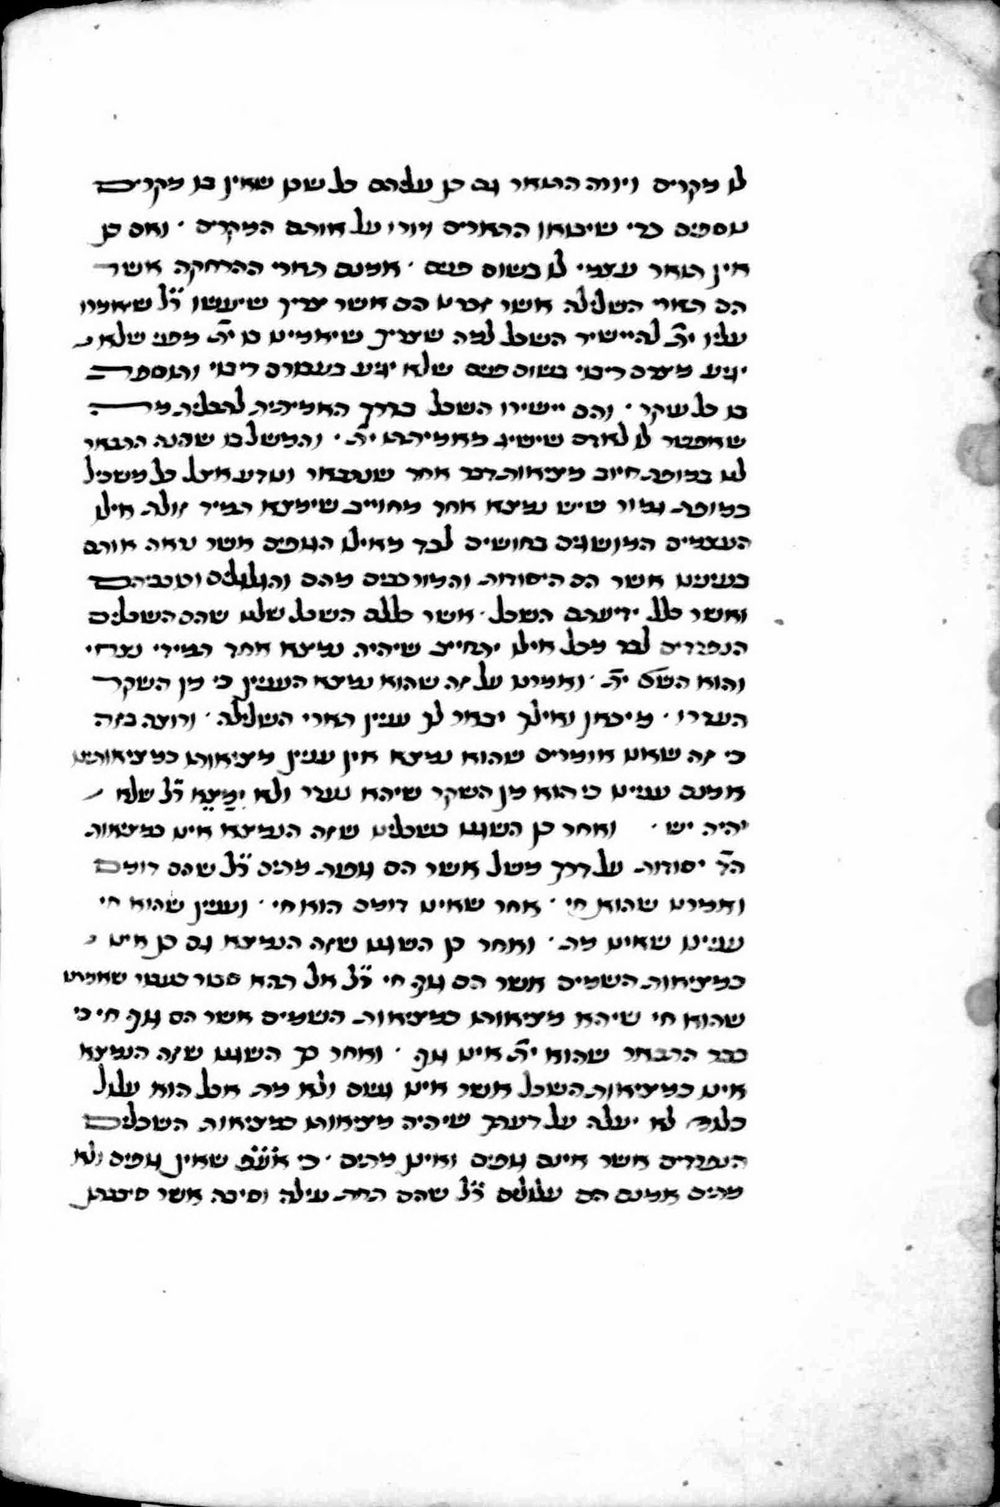 לו מקרים ויורה התואר גם כן עליהם כל שכן שאין בו מקרים
נוספים כדי שיבואו התוארים ויורו על אותם המקרים ׳ ואם כן
אין תואר עצמי לו בשום פנים ׳ אמנם תארי ההרחקה אשר
הם תארי השלילה אשר זכרנו הם אשר צריך שיעשו ר״ל שאמרו
עליו ית׳ להיישיר השכל למה שצריך שיאמינו בו ית׳ מפני שלא
יגיע מצדם ריבוי בשום פנים שלא יגיע בעבורם ריבוי ותוספת
בו כל שקר ׳ והם יישירו השכל בדרך האמיתית לתכלית מה
שאפשר לו לאדם שישיג מאמיתתו ית׳ ׳ והמשל בו שהנה התבאר
לנו במופת חיוב מציאות דבר אחר שנתבאר ונודע אצל כל משכיל
במופת גמור שיש נמצא אחד מחוייב שימצא תמיד זולת אילו
העצמים המושגים בחושים לבד מאילו הגופים אשר נראה אותם
בעינינו אשר הם היסודות והמורכבים מהם והגלגלים וכוכביהם
ואשר כלל ידיעתם השכל ׳ אשר כללם השכל שלנו שהם השכלים
הנפרדים לבד מכל אילו יתחייב שיהיה נמצא אחד תמידי נצחי
והוא השם ית׳ ׳ ואמרנו על זה שהוא נמצא העניין כי מן השקר
העדרו ׳ מיכאן ואילך יבאר לך עניין תארי השלילה ׳ ורוצה בזה
כי זה שאנו אומרים שהוא נמצא אין עניין מציאותו כמציאותינו
אמנם עניינו כי הוא מן השקר שיהא נעדר ולא ימצא ר״ל שלא
יהיה יש ׳ ואחר כן השגנו בשכלינו שזה הנמצא אינו כמציאות
הד׳ יסודות על דרך משל אשר הם גופות מתים ר״ל שהם דומם
ואמרנו שהוא חי ׳ אחר שאינו דומם הוא חי ׳ ועניין שהוא חי
עניינו שאינו מת ׳ ואחר כן השגנו שזה הנמצא גם כן אינו
כמציאות השמים אשר הם גוף חי ר״ל אל תהא סבור בעבור שאמרנו
שהוא חי שיהא מציאותו כמציאות השמים אשר הם גוף חי כי
כבר התבאר שהוא ית׳ אינו גוף ׳ ואחר כך השגנו שזה הנמצא
אינו כמציאות השכל אשר אינו גשם ולא מת אבל הוא עלול
כלומר לא יעלה על דעתך שיהיה מציאותו כמציאות השכלים
הנפרדים אשר אינם גופים ואינן מתים ׳ כי אע״פ שאין גופים ולא
מתים אמנם הם עלולים ר״ל שהם תחת עילה וסיבה אשר סיבבתן